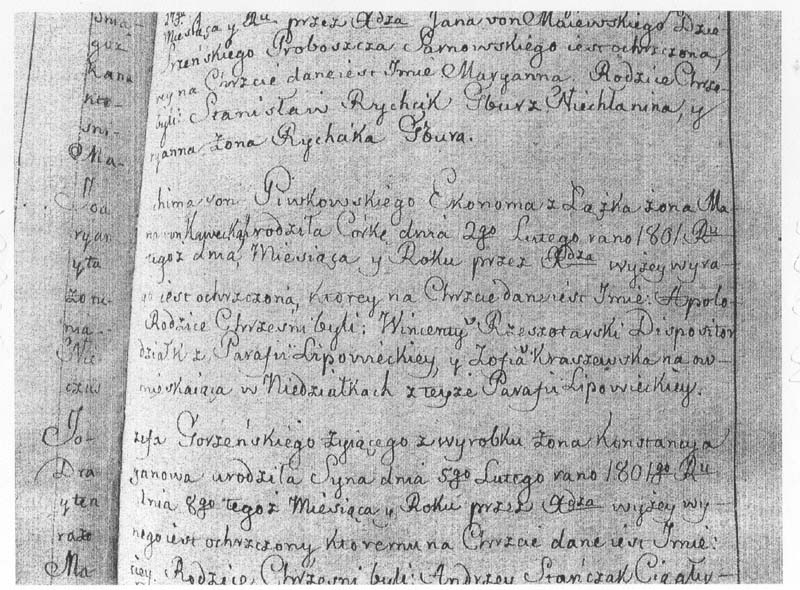 Miesiąca y Ru przez Xdza Jana von Maiewskiego Dzie
rzeńskiego Proboszcza Sarnowskiego iest ochrzczona,
rey na Chrzcie dane iest Jmie Maryanna. Rodzice Chrze-
byli: Stanisław Rychcik Gbur z Niechłanina, y
ryanna Żona Rychcika Gbura.
chima von Piwkowskiego Ekonoma z Łążka żona Ma-
na von urodziła Córkę dnia 2go Lutego rano 1801 Ru
tegoż dnia, Miesiąca y Roku przez Xdza wyżey wyra-
iest ochrzczona, ktorey na Chrzcie dane iest Jmie: Apolo-
Rodzice Chrzesni byli: Wincenty Rzeszotarski Dispositor
działk z Parafii Lipowieckiey, y Zofia Kraszewska na ow-
mieskaiąca w Niedziałkach z teyże Parafii Lipowieckiey.
zefa Gorzeńskiego żyiącego z wyrobku żona Konstancya
ganowa urodziła Syna dnia 5go Lutego rano 1801go Ru
dnia 8go tegoż Miesiąca y Roku przez Xdza wyżey wy-
nego iest ochrzczony ktoremu na Chrzcie dane iest Jmie:
Rodzice Chrzesni byli: Andrzey Stańczak
guz
kana
kto-
sni-
Ma-
Joa
ryan
yta
żone
nia-
Nie
czus
Jo-
Dra
yten
raże
Ma